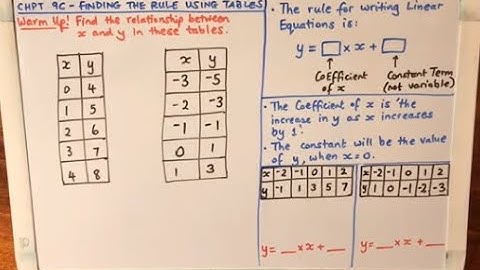 CHPT 9C - FINDING THE RULE USING TABLES
Warm Up! Find the relationship between
x and y in these tables.
x y
0 4
1 5
2 6
3 7
4 8
x y
-3 -5
-2 -3
-1 -1
0 1
1 3
• The rule for writing Linear
Equations is:
y = □ × x + □
Coefficient
of x
Constant Term
(not variable)
• The Coefficient of x is 'the
increase in y as x increases
by 1.'
• The constant will be the value
of y, when x=0.
x -2 -1 0 1 2
y -1 1 3 5 7
x -2 -1 0 1 2
y 1 0 -1 -2 -3
y= __ × x + __
y= __ × x + __